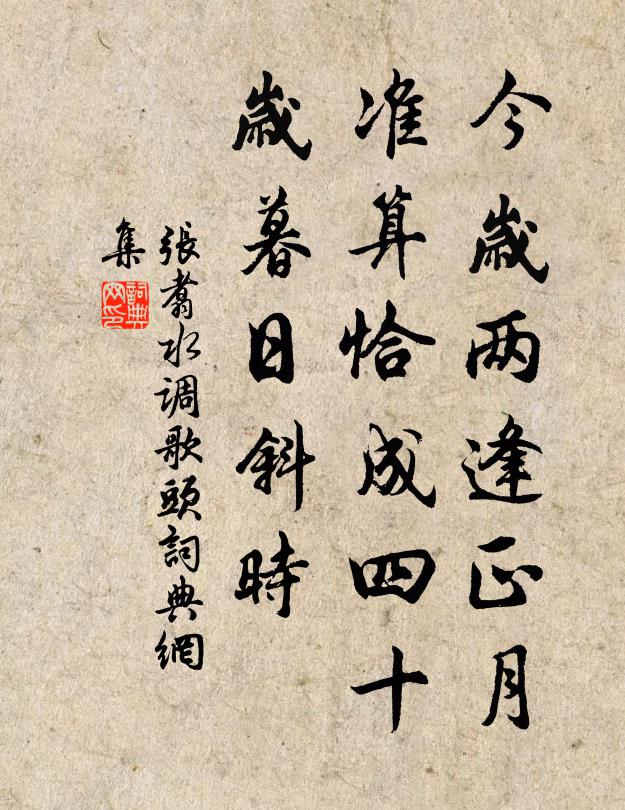 今歲两逢正月
准算恰成四十
歲暮日斜時
張翥水调歌頭詞典網
集
詞典
网印